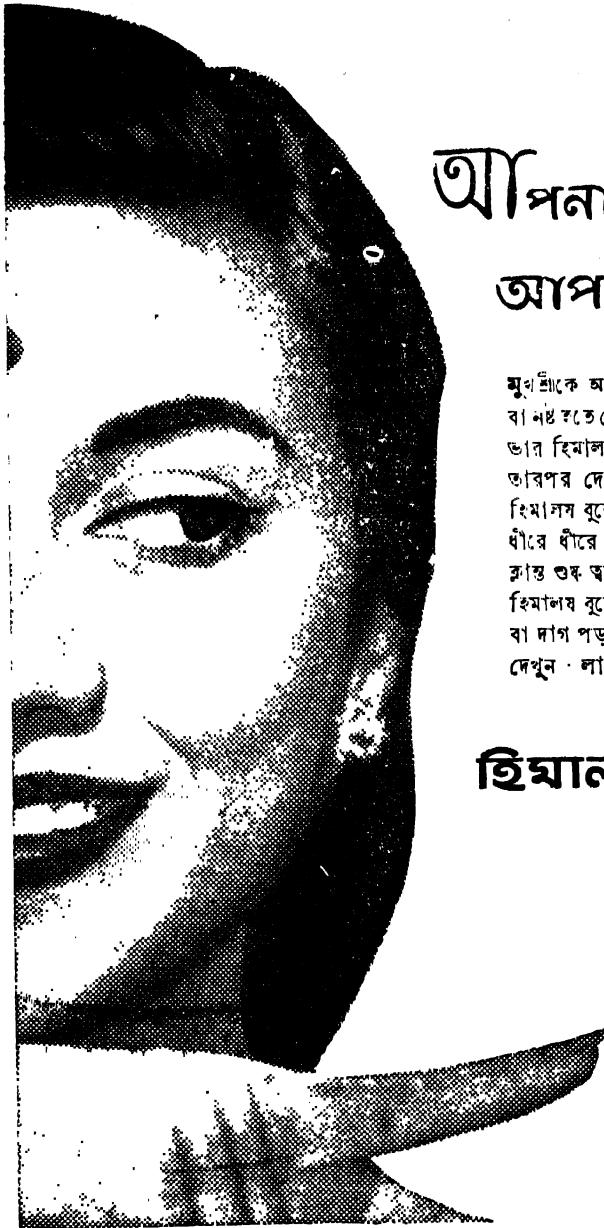 আপনা
আপ
মুখশ্রীকে অ
বা নষ্ট হতে
ভার হিমাল
তারপর দে
হিমালয় বু
ধীরে ধীরে
ক্লান্ত শুষ্ক ত্ব
হিমালয় বু
বা দাগ পড়
দেখুন · লা
হিমাল